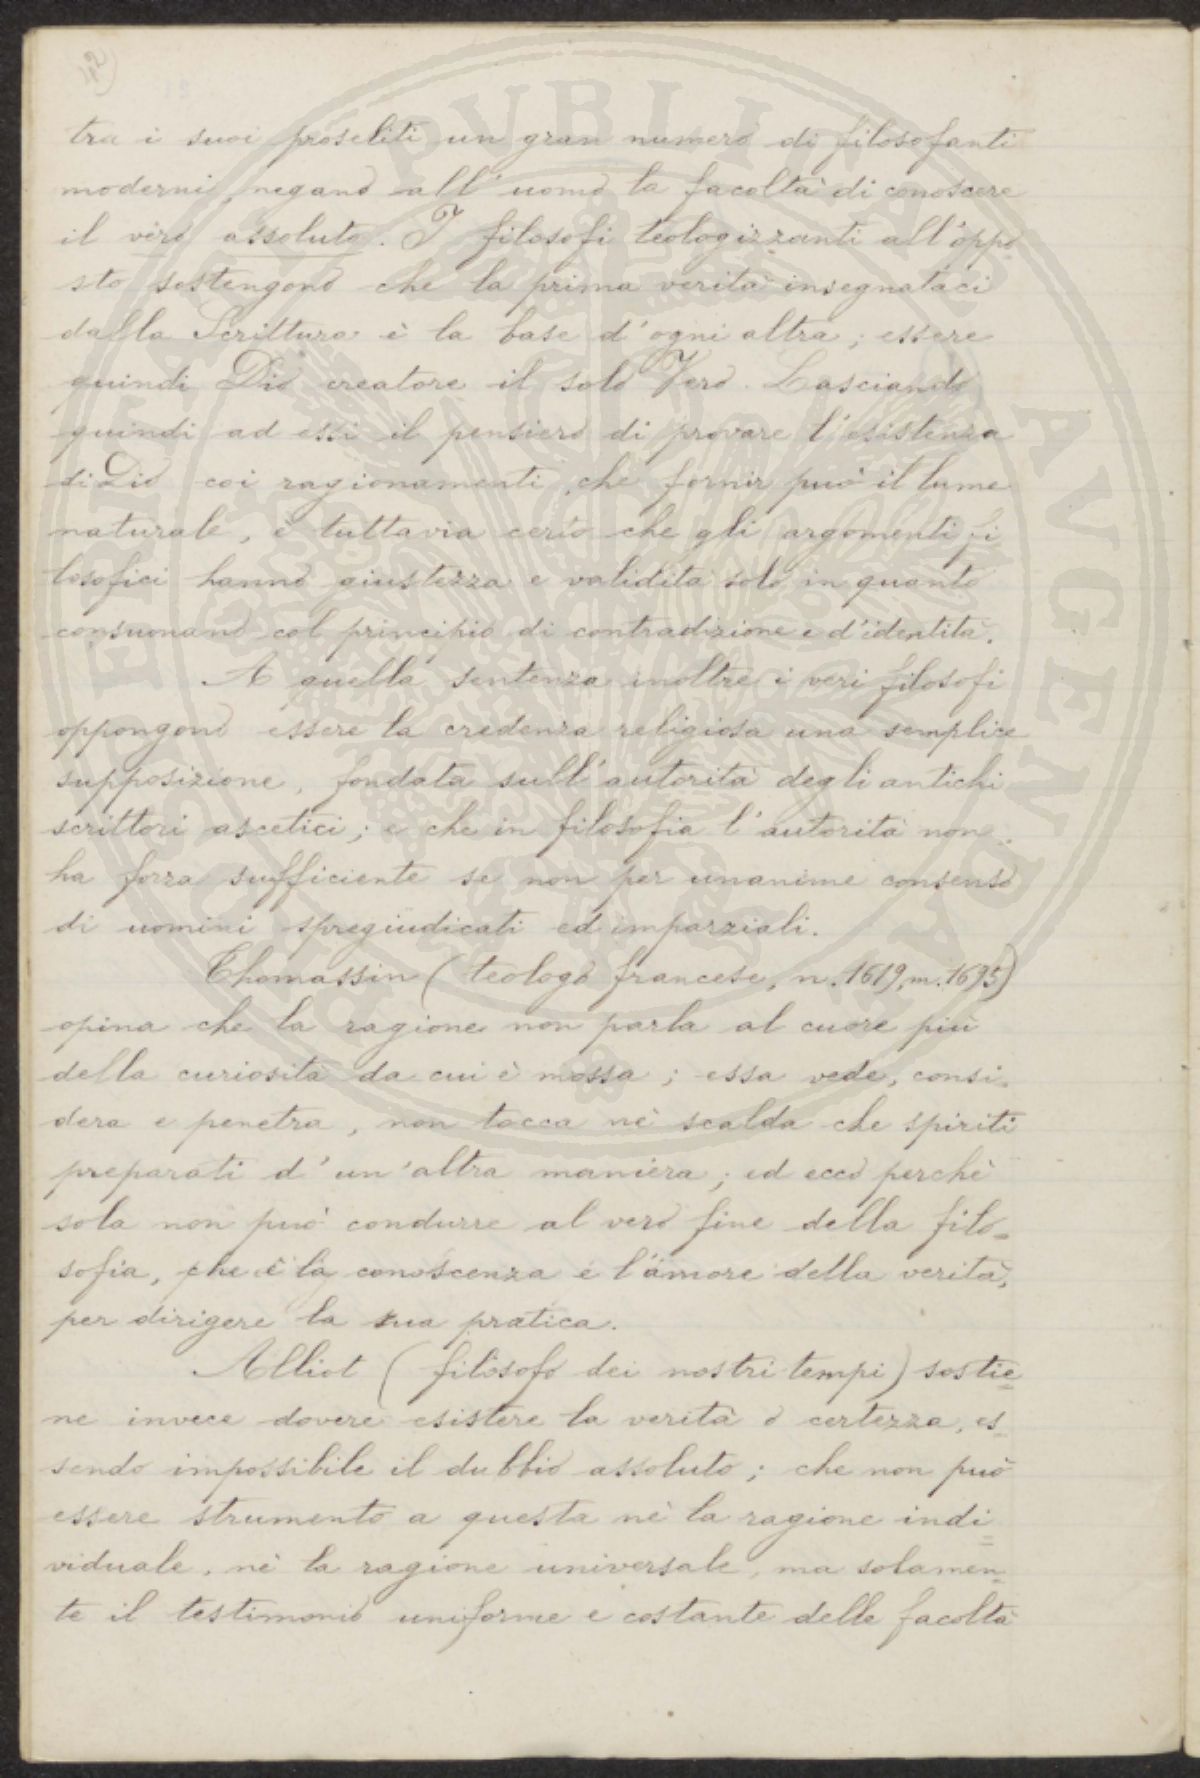 42)
tra i suoi proseliti un gran numero di filosofanti
moderni, negano all'uomo la facoltà di conoscere
il vero assoluto. I filosofi teologizzanti all'oppo
sto sostengono che la prima verità insegnataci
dalla Scrittura è la base d'ogni altra; essere
quindi Dio creatore il solo Vero. Lasciando
quindi ad essi il pensiero di provare l'esistenza
di Dio coi ragionamenti, che fornir può il lume
naturale, è tuttavia certo che gli argomenti fi
losofici hanno giustezza e validità solo in quanto
consuonano col principio di contradizione e d'identità.
A quella sentenza inoltre i veri filosofi
oppongono essere la credenza religiosa una semplice
supposizione, fondata sull'autorità degli antichi
scrittori ascetici; e che in filosofia l'autorità non
ha forza sufficiente se non per unanime consenso
di uomini spregiudicati ed imparziali.
Thomassin (teologo francese, n. 1619, m. 1695)
opina che la ragione non parla al cuore più
della curiosità da cui è mossa; essa vede, consi-
dera e penetra, non tocca nè scalda che spiriti
preparati d'un'altra maniera; ed ecco perchè
sola non può condurre al vero fine della filo=
sofia, che è la conoscenza e l'amore della verità,
per dirigere la sua pratica.
Alliot (filosofo dei nostri tempi) sostie=
ne invece dovere esistere la verità o certezza, es=
sendo impossibile il dubbio assoluto; che non può
essere strumento a questa nè la ragione indi=
viduale, nè la ragione universale, ma solamen=
te il testimonio uniforme e costante delle facoltà
PVBLICAE
AVGENDAE